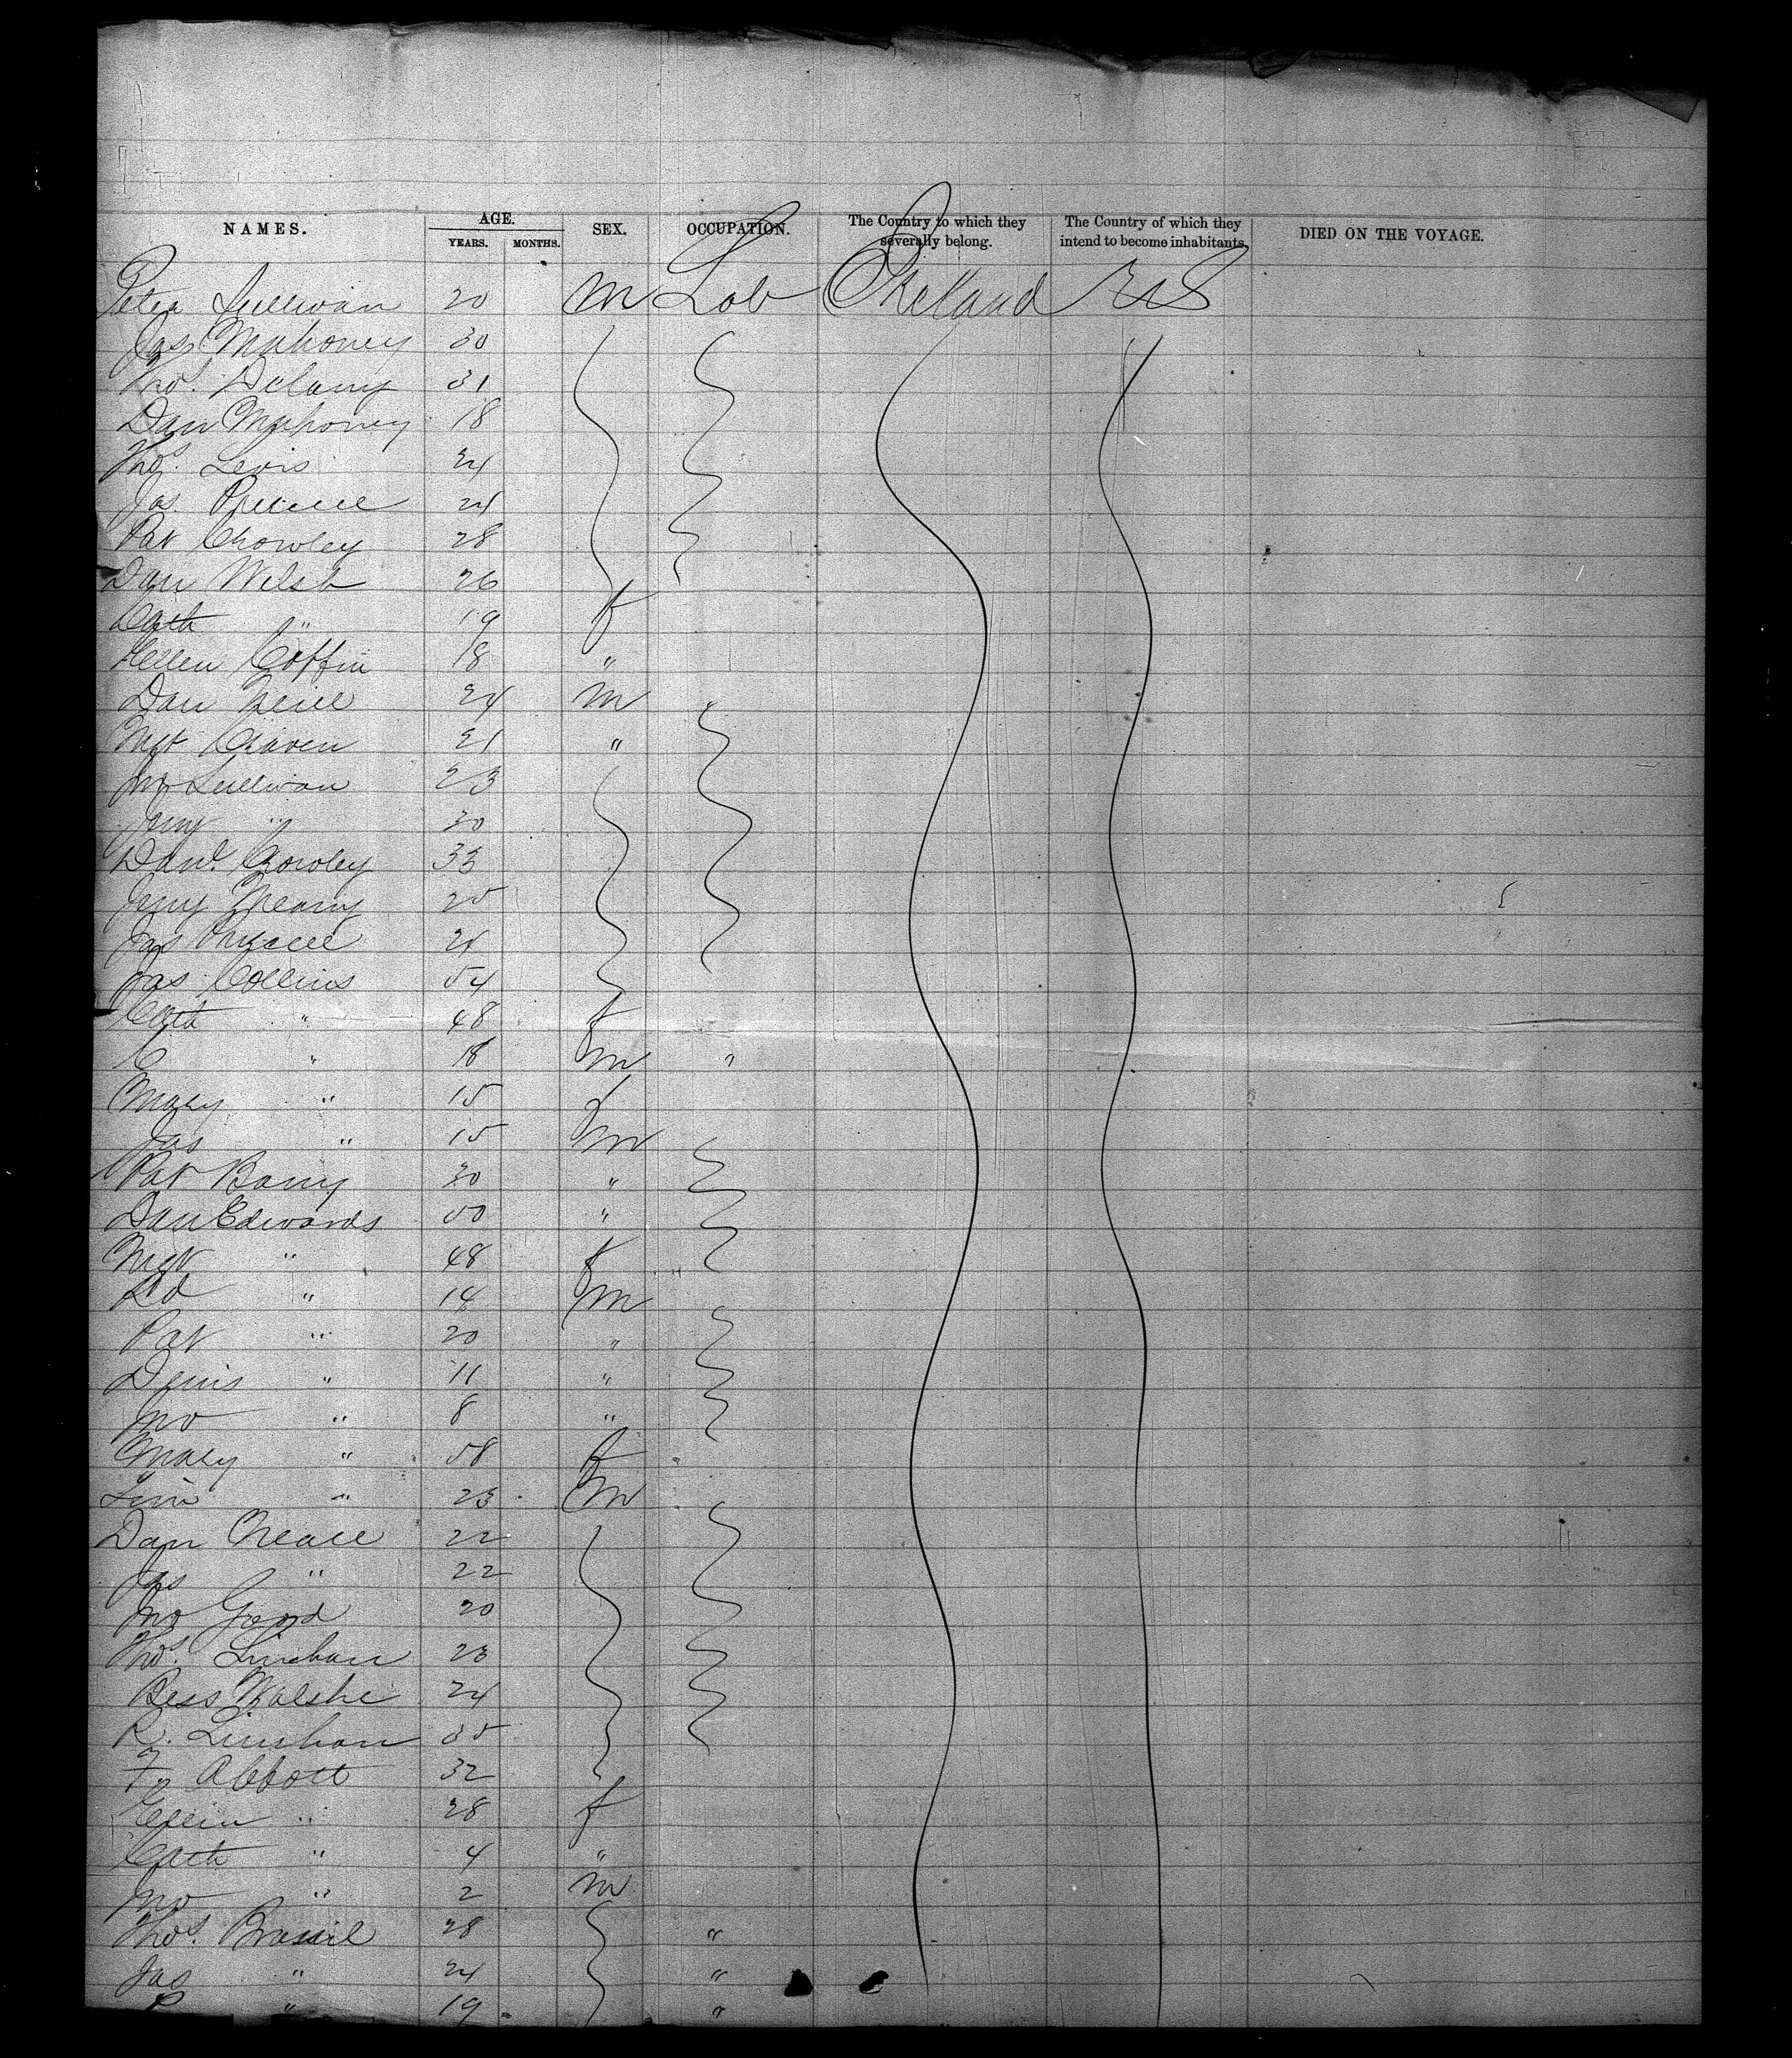 NAMES. AGE. SEX. OCCUPATION. The Country to which they severally belong. The Country of which they intend to become inhabitants. DIED ON THE VOYAGE.
YEARS. MONTHS.
Peter Sullivan 20 M Lab Ireland U S
Jas Mahoney 30
Thos. Delany 31
Dan Mahoney 18
Thos. Levis 24
Jas. 24
Pat Crowley 28
Dan Welsh 26
Cath " 19 f
Hellen Coffin 18 "
Dan Neill 24 M "
Mgt Craven 21 "
Jno Sullivan 23
Jerry " 30
Danl. Crowley 33
Jerry Neany 25
Jas 24
Jas Collins 54
Cath " 48 f
C " 18 M "
Mary " 15 f
Jas " 15 M
Pat Barry 30 "
Dan Edwards 50 "
Mgt " 48 f "
Ed " 14 M
Pat " 20 "
Denis " 11 "
Jno " 8 "
Mary " 58 f
Tim " 23 M
Dan Neall 22
Jas " 22
Jno Good 20
Thos. Linehan 23
Bess Walshe 24
R. Linehan 35
Abbott 32
Ellen " 28 f
Cath " 4 "
Jno " 2 M
Thos. Brassil 28 "
Jas " 24 "
P " 19 "